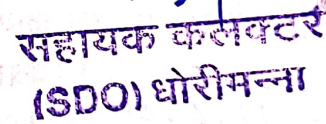 सहायक कलक्टर
(SDO) धोरीमन्ना